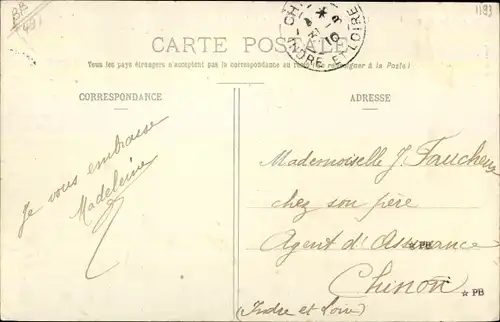 BA
491
1193
CARTE POSTALE
Tous les pays étrangers n'acceptent pas la correspondance au recto (Se renseigner à la Poste)
CORRESPONDANCE
Je vous embrasse
Madeleine
ADRESSE
Mademoiselle J. Faucheux
chez son père
Agent d'Assurance
Chinon
(Indre et Loire)
INDRE ET LOIRE
PB
PB